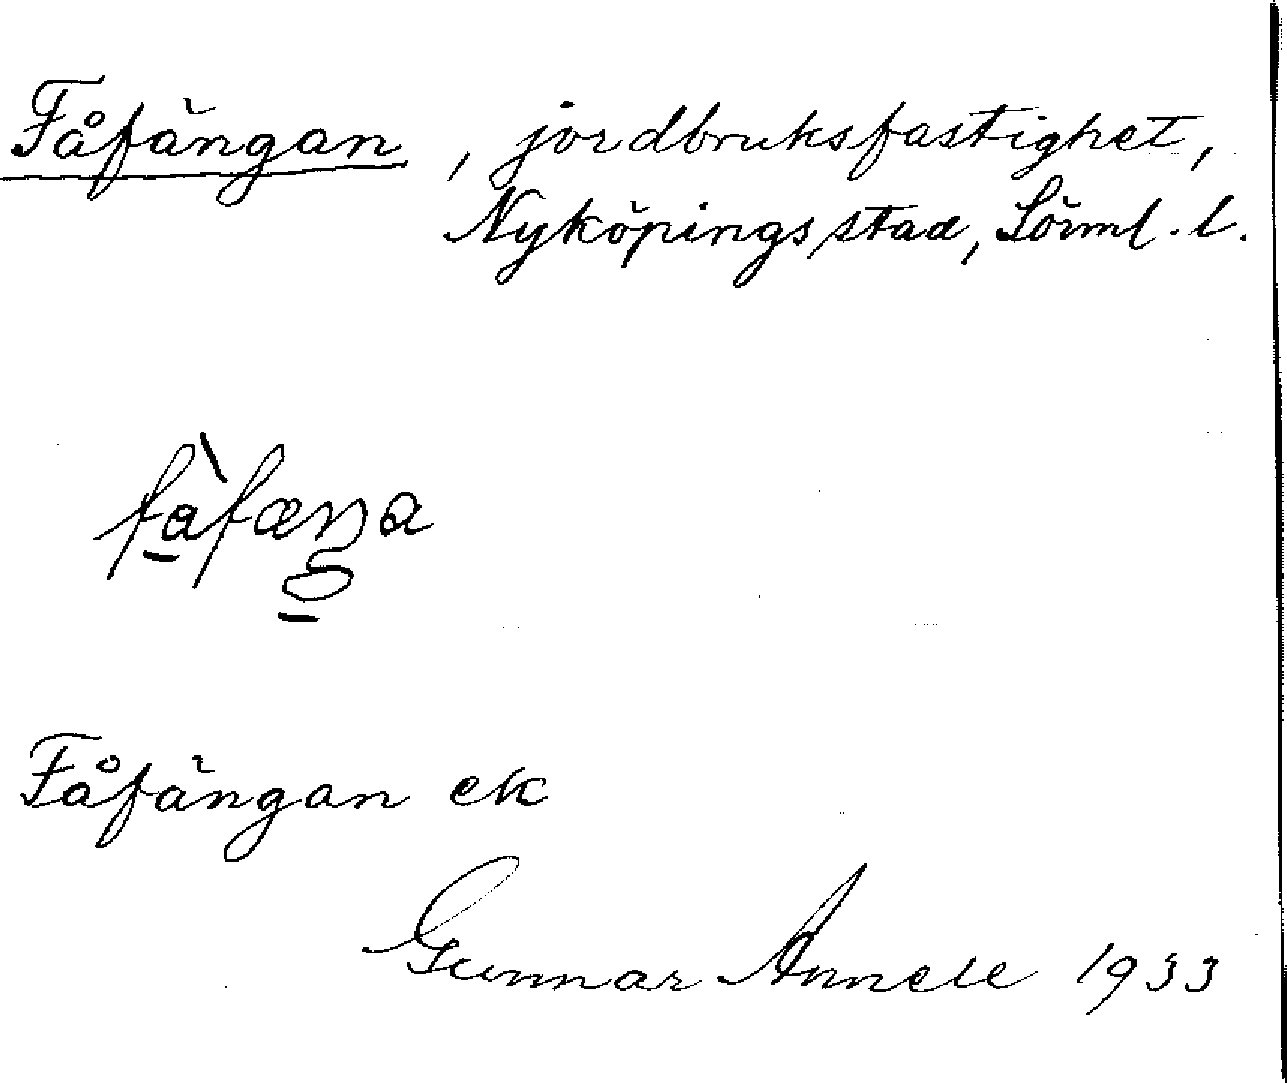 Fåfängan, jordbruksfastighet,
Nyköpings stad, Sörml. l.
Fåfängan ek
Gunnar Annell 1933